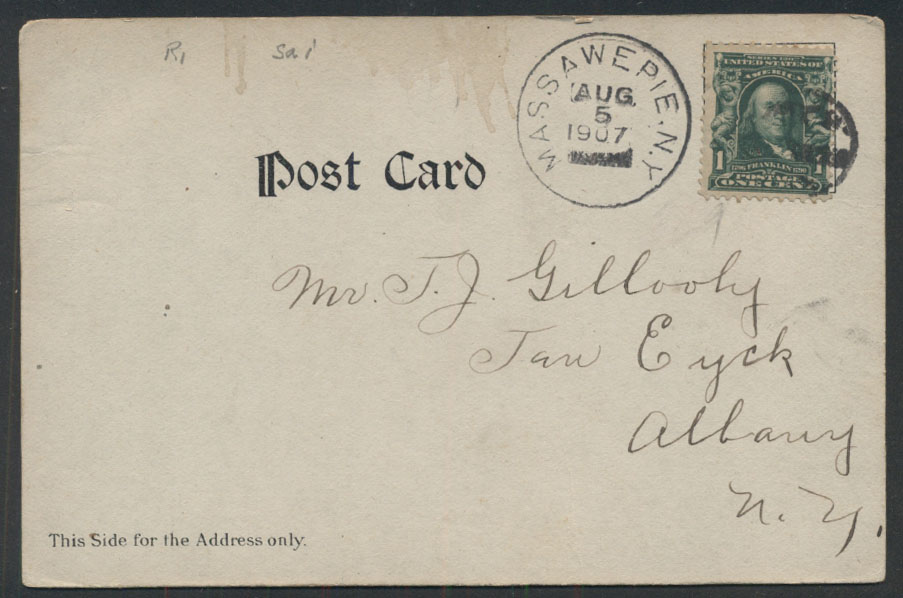 R1 Sai
MASSAWEPIE, N.Y.
AUG
5
1907
SERIES 1902
UNITED STATES OF
AMERICA
1 1706 FRANKLIN 1790 1
POSTAGE
ONE CENT
Post Card
Mr. T. J. Gillooly
Tan Eyck
Albany
N. Y.
This Side for the Address only.